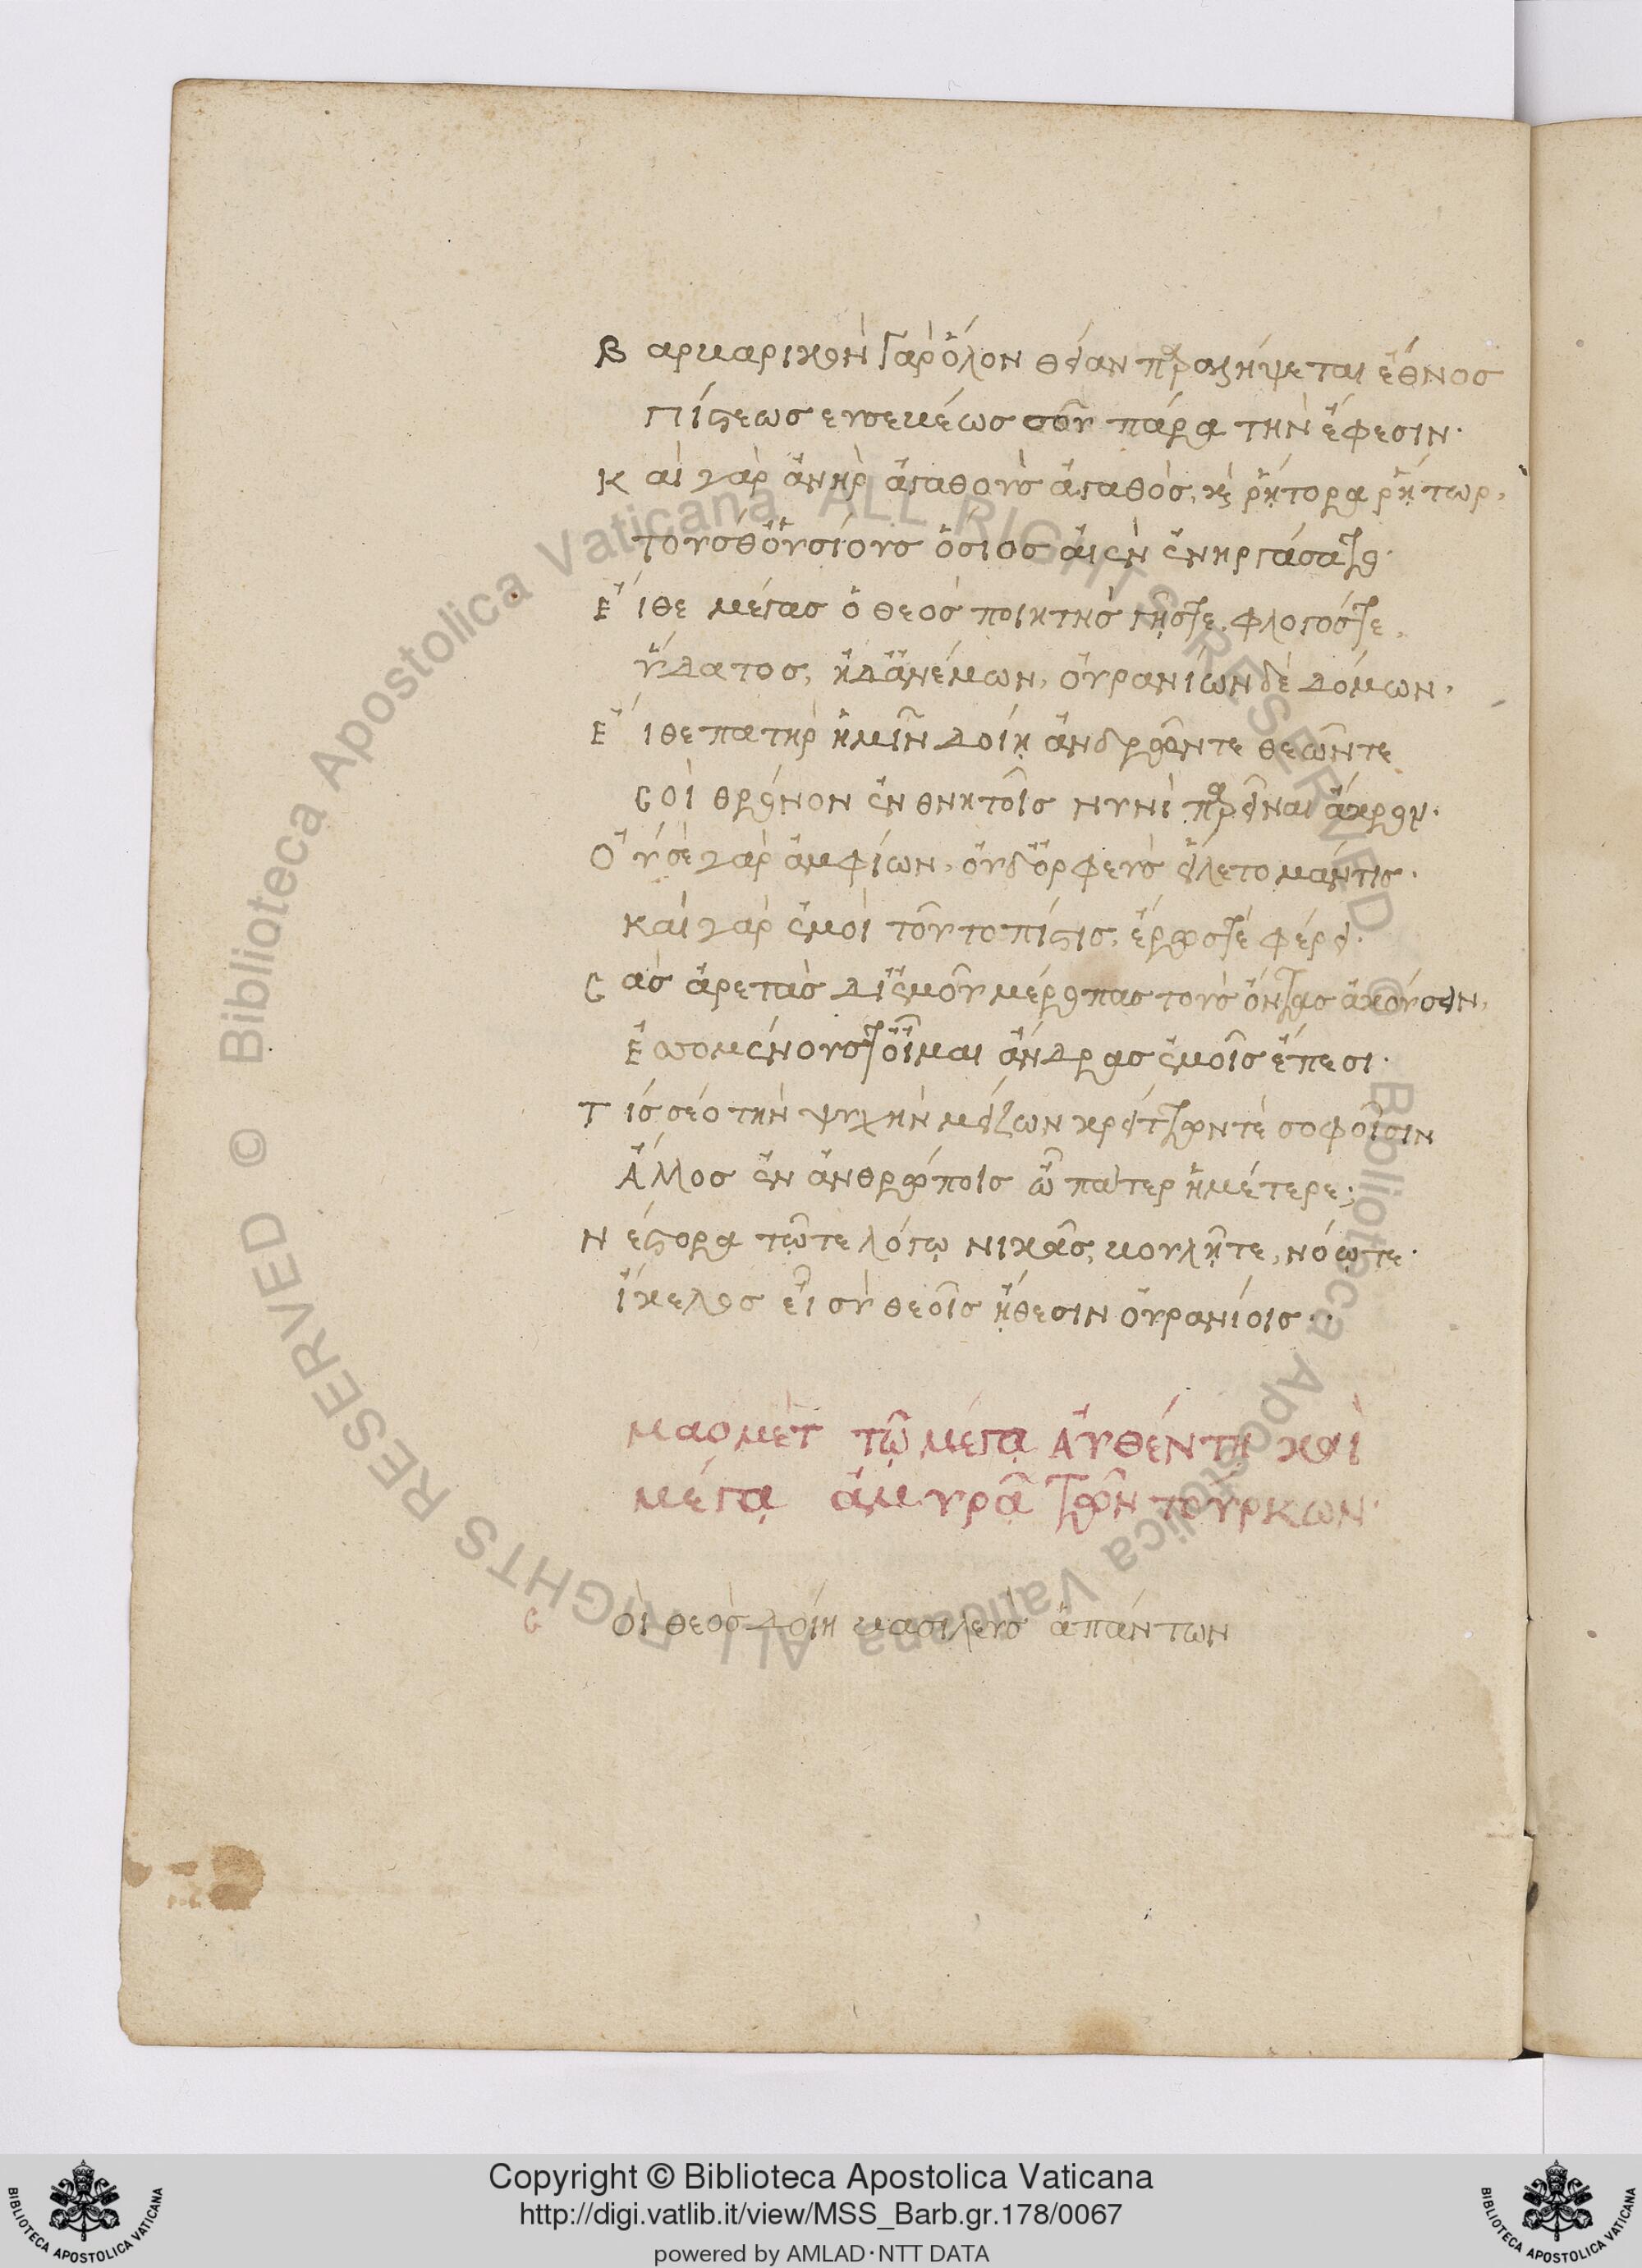 Βαρβαρικὸν γὰρ ὅλον θείαν παραλήψεται ἔθνος
πίστεως εὐσεβέως σοῦ πάρα τὴν ἔφεσιν·
Καὶ γὰρ ἀνὴρ ἀγαθοὺς ἀγαθὸς, καὶ ῥήτορα ῥήτωρ,
τοὺς θ' ὁσίους ὅσιος αἰὲν ἐνηργάσατο·
Εἴθε μέγας ὁ θεὸς ποιητὴς γῆς τε, φλογός τε,
ὕδατος, ἠδ' ἀνέμων, οὐρανίων δὲ δόμων,
Εἴθε πατὴρ ἡμῖν δοίη ἀνδρῶν τε θεῶν τε
σοὶ θρόνον ἐν θνητοῖς νυνὶ παρεῖναι ἄκρον·
Οὔ σε γὰρ ἀμφίων, οὐδ' ὀρφεὺς εἵλετο μάντις·
καὶ γὰρ ἐμοὶ τοῦτο πίστις, ἔρως τε φέρει·
Σὰς ἀρετὰς δι' ἐμοῦ μέροπας τοὺς ὄντας ἀκούσειν,
ἐσομένους τ' οἶμαι ἄνδρας ἐμοῖς ἔπεσι·
Τίς σέο τὴν ψυχὴν μείζων κρείττων τὲ σοφοῖσιν
ἄλλος ἐν ἀνθρώποις ὦ πάτερ ἡμέτερε;
Νέστορα τῷ τε λόγῳ νικᾶς, βουλῇ τε, νόῳ τε·
ἴκελος εἶ σὺ θεοῖς ἤθεσιν οὐρανίοις··
μαομὲτ τῷ μέγα αὐθέντῃ καὶ
μέγα ἀμυρᾷ τῶν τουρκων·
Σοὶ θεὸς δοίη βασιλεὺς ἁπάντων
Copyright © Biblioteca Apostolica Vaticana
http://digi.vatlib.it/view/MSS_Barb.gr.178/0067
powered by AMLAD·NTT DATA
BIBLIOTECA APOSTOLICA VATICANA
BIBLIOTECA APOSTOLICA VATICANA
Biblioteca Apostolica Vaticana ALL RIGHTS RESERVED ©
Biblioteca Apostolica Vaticana ALL RIGHTS RESERVED ©